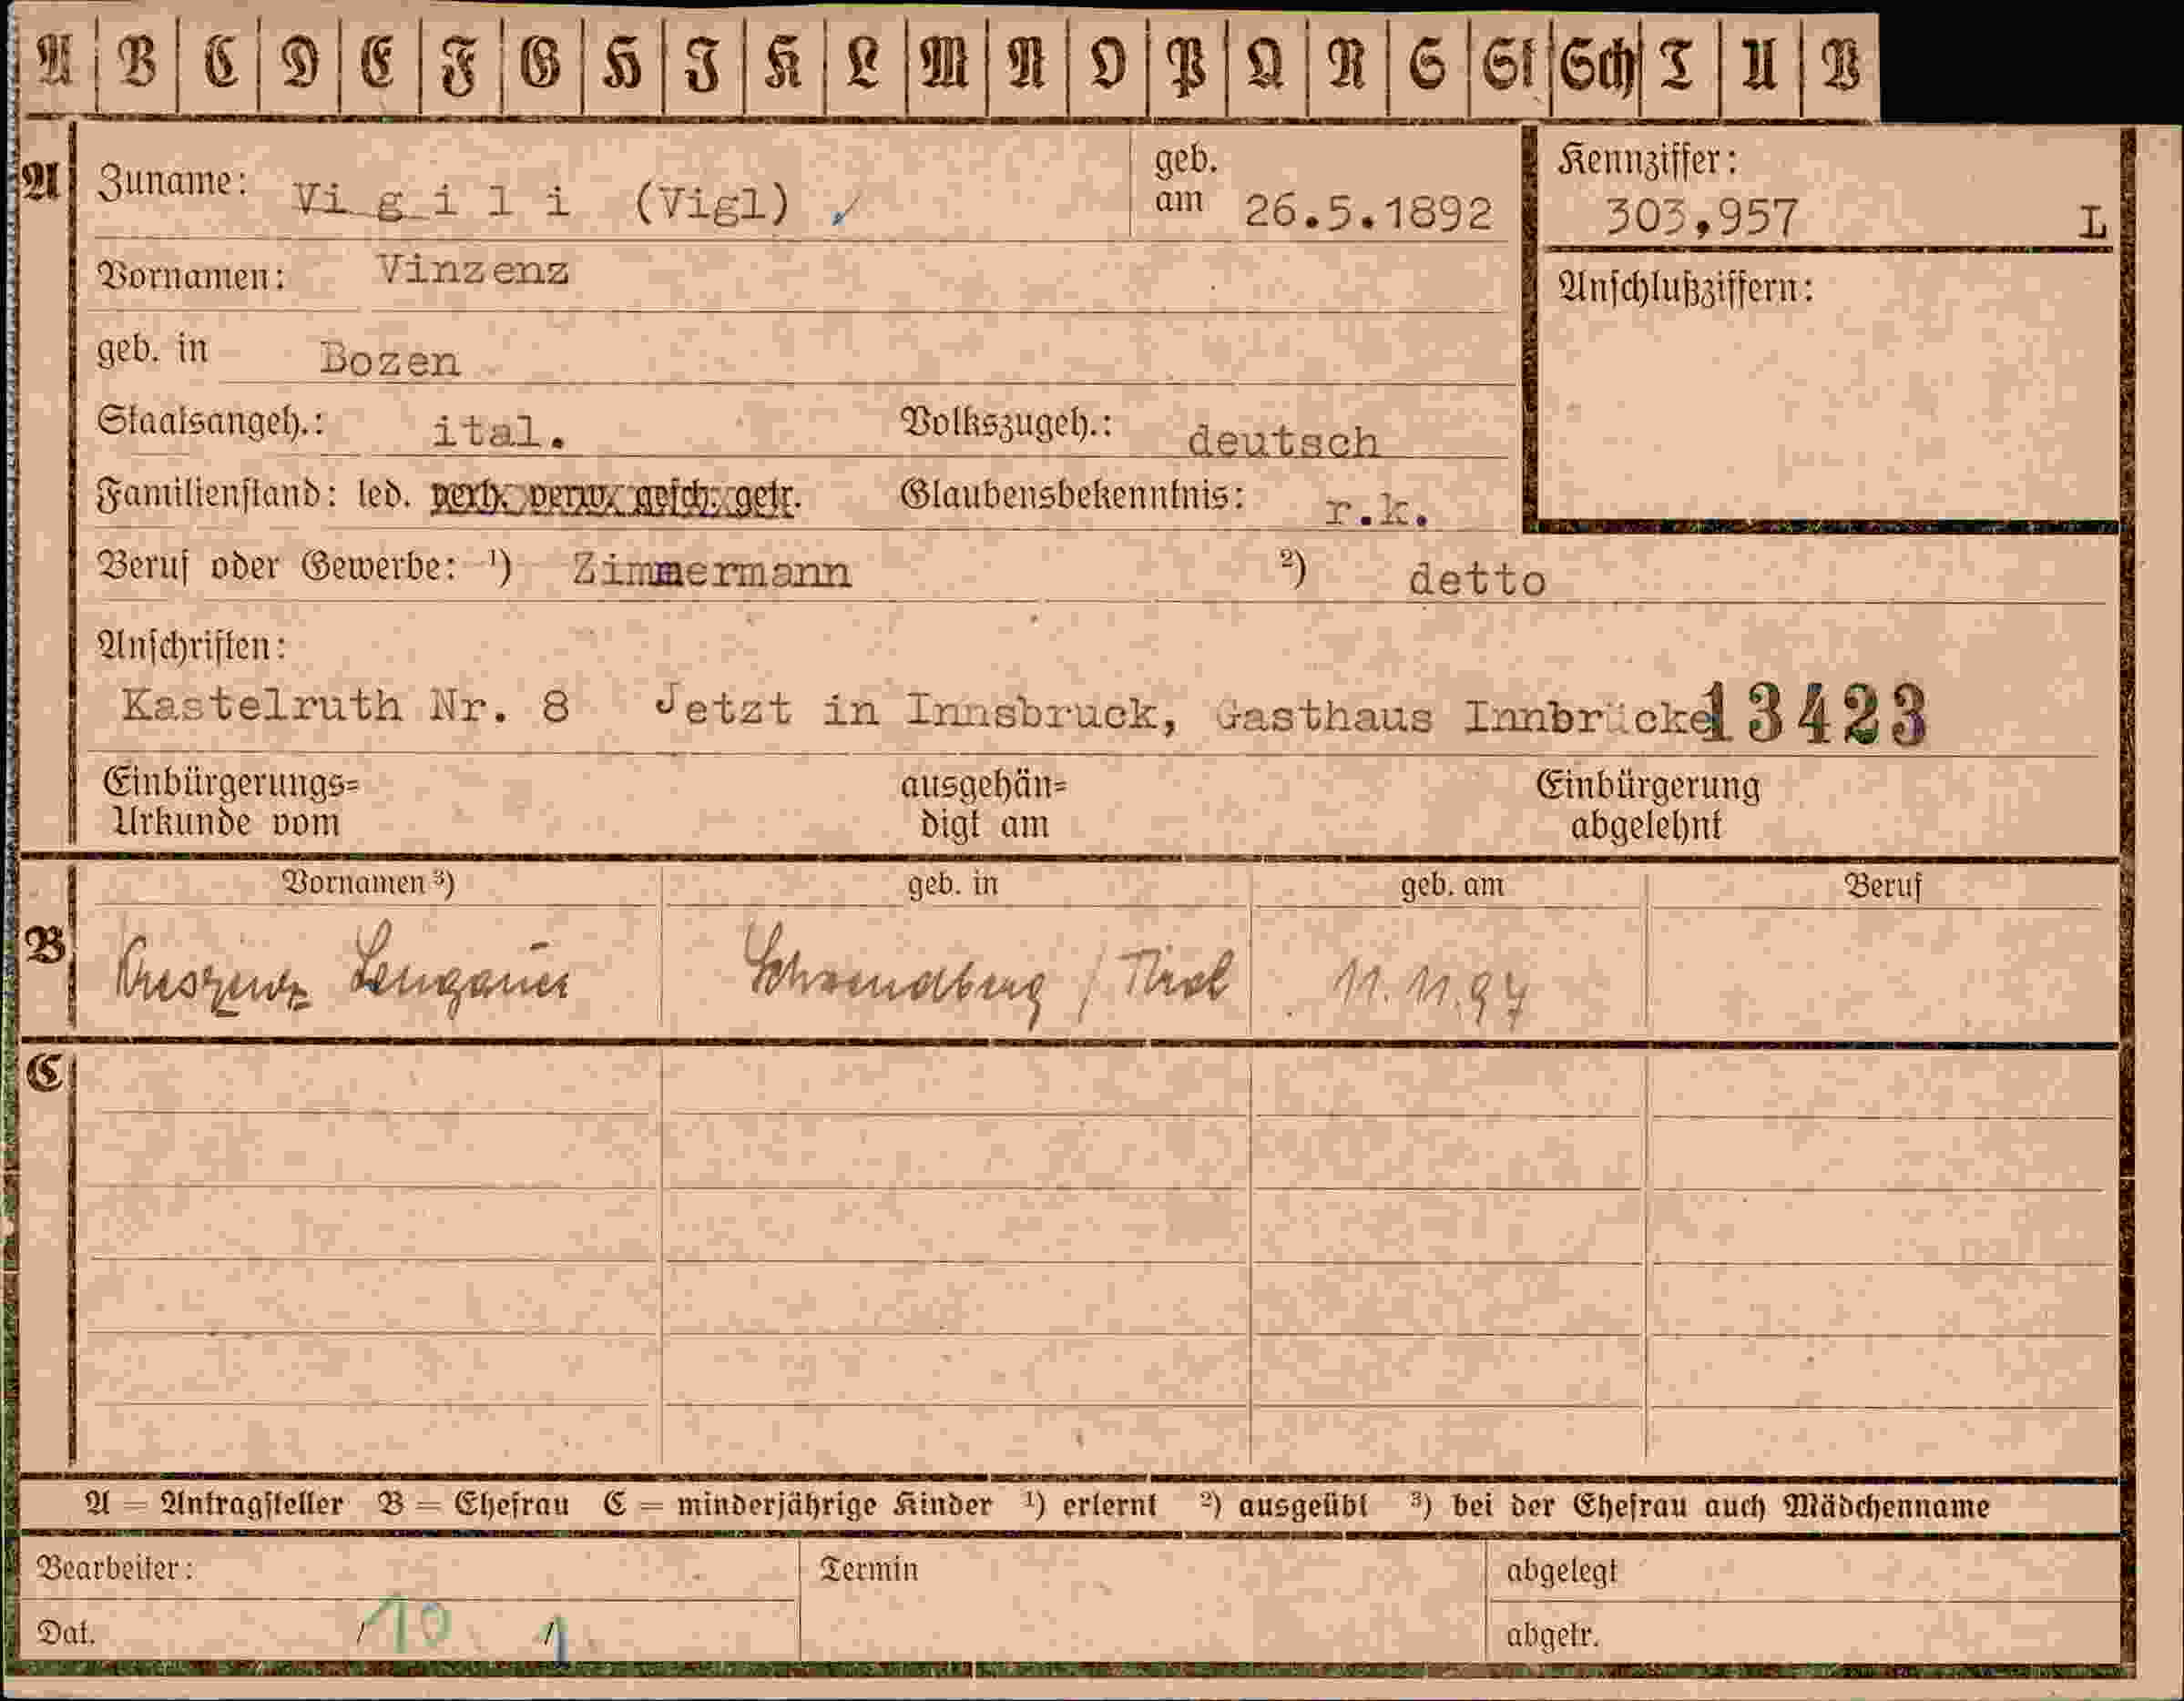 A B C D E F G H I K L M N O P Q R S St Sch T U V
A Zuname: Vi g i l i (Vigl) ✓ geb. am 26.5.1892 Kennziffer: 303,957 L
Vornamen: Vinzenz Anschlußziffern:
geb. in Bozen
Staatsangeh.: ital. Volkszugeh.: deutsch
Familienstand: led. verh. verw. gesch. getr. Glaubensbekenntnis: r.k.
Beruf oder Gewerbe: ¹) Zimmermann ²) detto
Anschriften:
Kastelruth Nr. 8 Jetzt in Innsbruck, Gasthaus Innbrücke 13423
Einbürgerungs= ausgehän= Einbürgerung
Urkunde vom digt am abgelehnt
Vornamen ³) geb. in geb. am Beruf
B / Tirol 11.11.97
C
A = Antragsteller B = Ehefrau C = minderjährige Kinder ¹) erlernt ²) ausgeübt ³) bei der Ehefrau auch Mädchenname
Bearbeiter: Termin abgelegt
Dat. 10 1 abgetr.